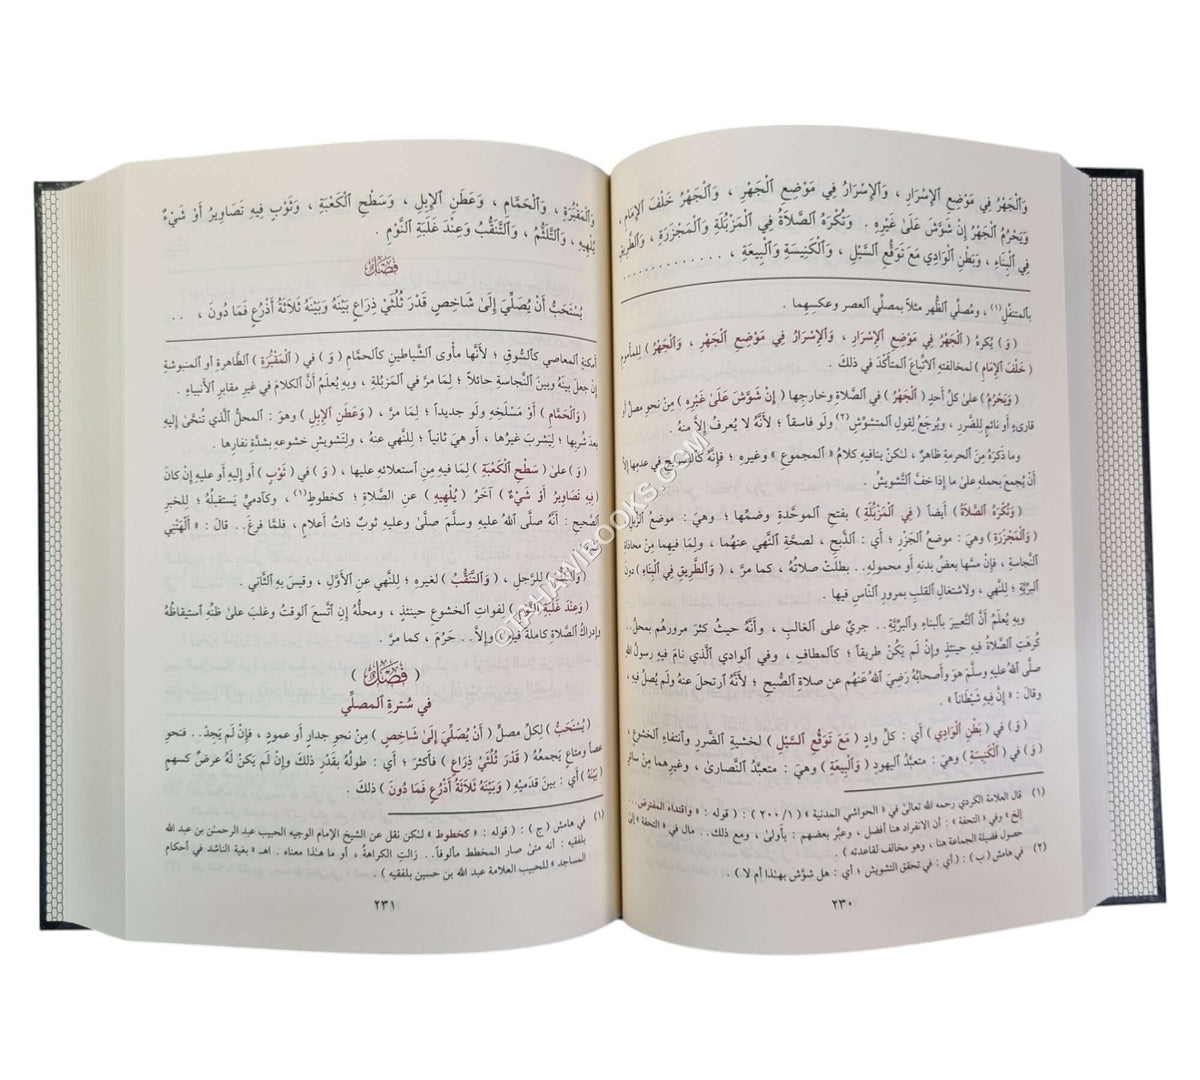 وَٱلْجَهْرُ فِي مَوْضِعِ ٱلإِسْرَارِ ، وَٱلإِسْرَارُ فِي مَوْضِعِ ٱلْجَهْرِ ، وَٱلْجَهْرُ خَلْفَ ٱلإِمَامِ ،
وَيَحْرُمُ ٱلْجَهْرُ إِنْ شَوَّشَ عَلَىٰ غَيْرِهِ . وَتُكْرَهُ ٱلصَّلاَةُ فِي ٱلْمَزْبُلَةِ وَٱلْمَجْزَرَةِ ، وَٱلطَّرِيقِ
فِي ٱلْبِنَاءِ ، وَبَطْنِ ٱلْوَادِي مَعَ تَوَقُّعِ ٱلسَّيْلِ ، وَٱلْكَنِيسَةِ وَٱلْبِيعَةِ ، . . . . . . . . . . . . . .
بٱلمتنفِّلِ(١) ، ومُصلِّي ٱلظُّهر مثلاً بمصلِّي العصر وعكسِهما .
( وَ ) يُكرهُ ( ٱلْجَهْرُ فِي مَوْضِعِ ٱلإِسْرَارِ ، وَٱلإِسْرَارُ فِي مَوْضِعِ ٱلْجَهْرِ ، وَٱلْجَهْرُ ) للمأمومِ
( خَلْفَ ٱلإِمَامِ ) لمخالفتهِ ٱلاتِّباعَ ٱلمتأكِّدَ في ذلكَ .
( وَيَحْرُمُ ) علىٰ كلِّ أحدٍ ( ٱلْجَهْرُ ) في ٱلصَّلاةِ وخارجِها ( إِنْ شَوَّشَ عَلَىٰ غَيْرِهِ ) مِنْ نحوِ مصلٍّ أو
قارىءٍ أو نائمٍ للضَّررِ ، ويُرجَعُ لقولِ ٱلمتشوِّشِ(٢) ولو فاسقاً ؛ لأنَّهُ لا يُعرفُ إلاَّ منهُ .
وما ذكرَهُ مِنَ ٱلحرمةِ ظاهرٌ ، لكنْ ينافيهِ كلامُ « ٱلمجموع » وغيرِه ؛ فإنَّهُ كٱلصَّريحِ في عدمِها إلاَّ
أنْ يُجمعَ بحملهِ علىٰ ما إذا خفَّ ٱلتَّشويشُ .
( وَتُكْرَهُ ٱلصَّلاَةُ ) أيضاً ( فِي ٱلْمَزْبُلَةِ ) بفتحِ ٱلموحَّدةِ وضمِّها ؛ وهيَ : موضعُ ٱلزِّبلِ
( وَٱلْمَجْزَرَةِ ) وهيَ : موضعُ ٱلجَزْرِ ؛ أي : ٱلذَّبحِ ، لصحَّةِ ٱلنَّهي عنهُما ، ولِمَا فيهما مِنْ محاذاةِ
ٱلنَّجاسةِ ، فإنْ مسَّها بعضُ بدنهِ أو محمولهِ.. بطلَتْ صلاتُهُ ، كما مرَّ ، ( وَٱلطَّرِيقِ فِي ٱلْبِنَاءِ ) دونَ
ٱلبرِّيَّةِ ؛ للنهي ، ولاشتغالِ ٱلقلبِ بمرورِ ٱلنَّاسِ فيها .
وبهِ يُعلَمُ أنَّ ٱلتَّعبيرَ بٱلبناءِ وٱلبرِّيَّةِ.. جريٌ على ٱلغالبِ ، وأنَّهُ حيثُ كثرَ مرورُهم بمحلٍّ..
كُرهَتِ ٱلصَّلاةُ فيهِ حينئذٍ وإنْ لَمْ يَكنْ طريقاً ؛ كٱلمطافِ ، وفي ٱلوادي ٱلَّذي نامَ فيهِ رسولُ ٱللهِ
صلَّى ٱللهُ عليهِ وسلَّمَ هوَ وأصحابُهُ رَضِيَ ٱللهُ عَنْهُم عن صلاةِ ٱلصُّبحِ ؛ لأنَّهُ ٱرتحلَ عنهُ ولَمْ يُصلِّ فيهِ ،
وقالَ : « إِنَّ فِيهِ شَيْطَاناً » .
( وَ ) في ( بَطْنِ ٱلْوَادِي ) أي : كلِّ وادٍ ( مَعَ تَوَقُّعِ ٱلسَّيْلِ ) لخشيةِ ٱلضَّررِ وٱنتفاءِ ٱلخشوعِ ،
( وَ ) في ( ٱلْكَنِيسَةِ ) وهيَ : متعبَّدُ ٱليهودِ ( وَٱلْبِيعَةِ ) وهيَ : متعبَّدُ ٱلنَّصارىٰ ، وغيرِهما مِنْ سائرِ
(١) قال العلامة الكردي رحمه الله تعالىٰ في « الحواشي المدنية » ( ٢٠٠/١ ) : ( قوله : « واقتداء المفترض...
إلخ » وفي « التحفة » : أن الانفراد هنا أفضل ، وعبَّر بعضهم : بأولىٰ ، ومع ذلك.. مال في « التحفة » إلىٰ
حصول فضيلة الجماعة هنا ، وهو مخالف لقاعدته ) .
(٢) في هامش ( ب ) : ( أي : في تحقق التشويش ؛ أي : هل شوَّش بهذا أم لا ) .
٢٣٠
وَٱلْمَقْبُرَةِ ، وَٱلْحَمَّامِ ، وَعَطَنِ ٱلإِبِلِ ، وَسَطْحِ ٱلْكَعْبَةِ ، وَثَوْبٍ فِيهِ تَصَاوِيرُ أَوْ شَيْءٌ
يُلْهِيهِ ، وَٱلتَّلَثُّمُ ، وَٱلتَّنَقُّبُ وَعِنْدَ غَلَبَةِ ٱلنَّوْمِ .
فَصْلٌ
يُسْتَحَبُّ أَنْ يُصَلِّيَ إِلَىٰ شَاخِصٍ قَدْرَ ثُلُثَيْ ذِرَاعٍ بَيْنَهُ وَبَيْنَهُ ثَلاَثَةُ أَذْرُعٍ فَمَا دُونَ ، . .
أمكنةِ ٱلمعاصي كٱلسُّوقِ ؛ لأنَّها مأوى ٱلشَّياطينِ كٱلحمَّامِ ( وَ ) في ( ٱلْمَقْبُرَةِ ) ٱلطَّاهرةِ أو ٱلمنبوشةِ
إنْ جعلَ بينَهُ وبينَ ٱلنَّجاسةِ حائلاً ؛ لِمَا مرَّ في ٱلمزبلةِ ، وبهِ يُعلَمُ أنَّ ٱلكلامَ في غيرِ مقابرِ ٱلأنبياءِ .
( وَٱلْحَمَّامِ ) أو مَسْلَخِهِ ولو جديداً ؛ لِمَا مرَّ ، ( وَعَطَنِ ٱلإِبِلِ ) وهوَ : ٱلمحلُّ ٱلَّذي تُنحَّىٰ إليهِ
بعدَ شُربِها ؛ لِيَشربَ غيرُها ، أو هيَ ثانياً ؛ للنَّهي عنهُ ، ولتشويشِ خشوعهِ بشدَّةِ نفارِها .
( وَ ) علىٰ ( سَطْحِ ٱلْكَعْبَةِ ) لِمَا فيهِ مِنِ ٱستعلائهِ عليها ، ( وَ ) في ( ثَوْبٍ ) أو إليهِ أو عليهِ إنْ كانَ
( فِيهِ تَصَاوِيرُ أَوْ شَيْءٌ ) آخرُ ( يُلْهِيهِ ) عنِ ٱلصَّلاةِ ؛ كخطوطٍ(١) ، وكآدميٍّ يَستقبلُهُ ؛ للخبرِ
ٱلصَّحيحِ : أنَّهُ صلَّى ٱللهُ عليهِ وسلَّمَ صلَّىٰ وعليهِ ثوبٌ ذاتُ أعلامٍ ، فلمَّا فرغَ.. قالَ : « أَلْهَتْنِي
للرَّجلِ ، ( وَٱلتَّنَقُّبُ ) لغيرِهِ ؛ للنَّهي عنِ ٱلأوَّلِ ، وقيسَ بهِ ٱلثَّاني .
( وَعِنْدَ غَلَبَةِ ٱلنَّوْمِ ) لفواتِ ٱلخشوعِ حينئذٍ ، ومحلُّهُ إنِ ٱتَّسعَ ٱلوقتُ وغلبَ علىٰ ظنِّهِ ٱستيقاظُهُ
وإدراكُ ٱلصَّلاةِ كاملةً فيهِ ، وإلاَّ.. حَرُمَ ، كما مرَّ .
( فَصْلٌ )
في سُترةِ ٱلمصلِّي
( يُسْتَحَبُّ ) لكلِّ مصلٍّ ( أَنْ يُصَلِّيَ إِلَىٰ شَاخِصٍ ) مِنْ نحوِ جدارٍ أو عمودٍ ، فإنْ لَم يَجِدْ.. فنحوِ
عصاً ومتاعٍ يَجمعُهُ ( قَدْرَ ثُلُثَيْ ذِرَاعٍ ) فأكثرَ ؛ أي : طولُهُ بقَدْرِ ذلكَ وإنْ لَم يَكنْ لهُ عرضٌ كسهمٍ
( بَيْنَهُ ) أي : بينَ قدميهِ ( وَبَيْنَهُ ثَلاَثَةُ أَذْرُعٍ فَمَا دُونَ ) ذلكَ .
(١) في هامش ( ج ) : ( قوله : « كخطوط » لكن نقل عن الشيخ الإمام الوجيه الحبيب عبد الرحمٰن بن عبد الله
بلفقيه : أنه متىٰ صار المخطط مألوفاً.. زالت الكراهة ، أو ما هٰذا معناه . اهـ « بغية الناشد في أحكام
المساجد » للحبيب العلامة عبد الله بن حسين بلفقيه ) .
٢٣١
©TAHAWIBOOKS.COM